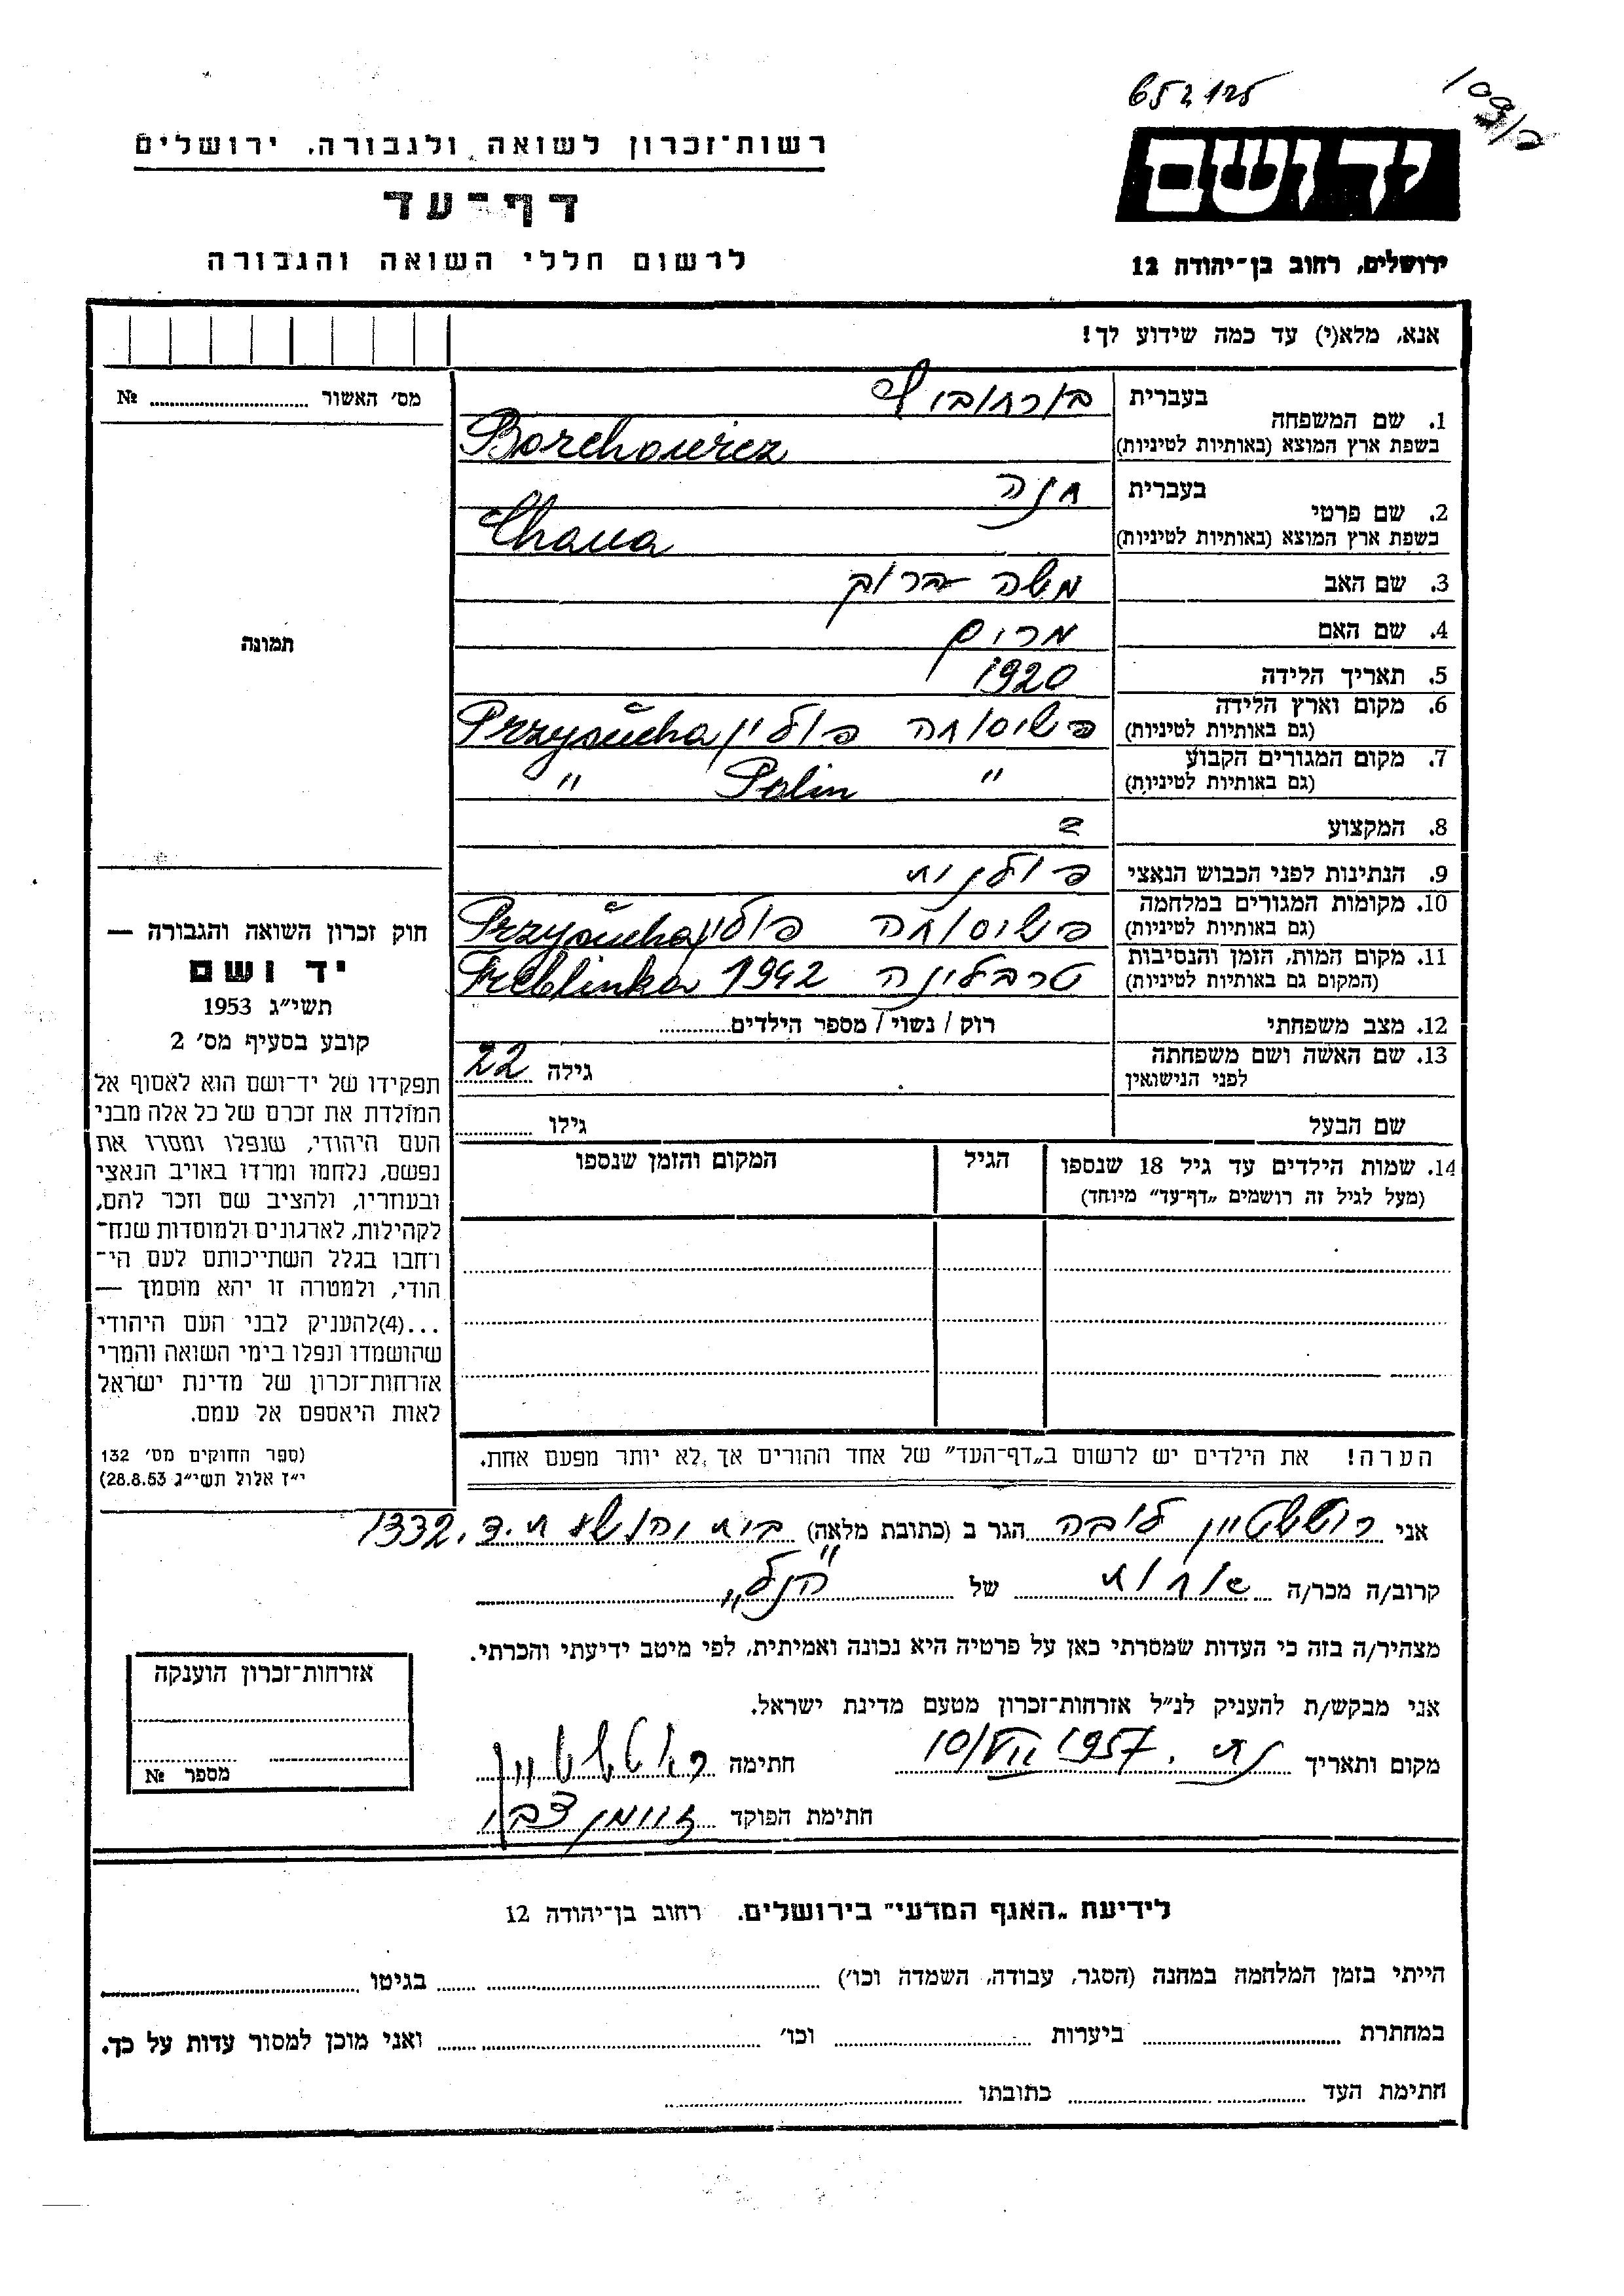 652125
ידושם
רשות־זכרון לשואה ולגבורה, ירושלים
דף־עד
לרשום חללי השואה והגבורה
ירושלים, רחוב בן־יהודה 12
אנא, מלא(י) עד כמה שידוע לך!
מס׳ האשור № ........
1. שם המשפחה
בעברית בורחוביץ
בשפת ארץ המוצא (באותיות לטיניות) Borchowicz
2. שם פרטי
בעברית חנה
בשפת ארץ המוצא (באותיות לטיניות) Chana
3. שם האב משה ברוך
4. שם האם מרים
5. תאריך הלידה 1920
6. מקום וארץ הלידה
(גם באותיות לטיניות) פשיסוחה פולין Przysucha
7. מקום המגורים הקבוע
(גם באותיות לטיניות) " Polin "
8. המקצוע ?
9. הנתינות לפני הכבוש הנאצי פולנית
10. מקומות המגורים במלחמה
(גם באותיות לטיניות) פשיסוחה פולין Przysucha
11. מקום המות, הזמן והנסיבות
(המקום גם באותיות לטיניות) טרבלינה 1942 Treblinka
12. מצב משפחתי רוק / נשוי / מספר הילדים............
13. שם האשה ושם משפחתה
לפני הנישואין גילה 22
שם הבעל גילו ............
14. שמות הילדים עד גיל 18 שנספו
(מעל לגיל זה רושמים „דף־עד״ מיוחד)
הגיל
המקום והזמן שנספו
תמונה
חוק זכרון השואה והגבורה —
יד ושם
תשי״ג 1953
קובע בסעיף מס׳ 2
תפקידו של יד־ושם הוא לאסוף אל
המולדת את זכרם של כל אלה מבני
העם היהודי, שנפלו ומסרו את
נפשם, נלחמו ומרדו באויב הנאצי
ובעוזריו, ולהציב שם וזכר להם,
לקהילות, לארגונים ולמוסדות שנח־
רחבו בגלל השתייכותם לעם הי־
הודי, ולמטרה זו יהא מוסמך —
...(4)להעניק לבני העם היהודי
שהושמדו ונפלו בימי השואה והמרי
אזרחות־זכרון של מדינת ישראל
לאות היאספם אל עמם.
(ספר החוקים מס׳ 132
י״ז אלול תשי״ג 28.8.53)
הערה! את הילדים יש לרשום ב„דף־העד״ של אחד ההורים אך לא יותר מפעם אחת.
אני רוטשטיין ליבה הגר ב (כתובת מלאה) בית יהושע ת.ד. 1332
קרוב/ה מכר/ה אחות של "הנ״ל"
מצהיר/ה בזה כי העדות שמסרתי כאן על פרטיה היא נכונה ואמיתית, לפי מיטב ידיעתי והכרתי.
אני מבקש/ת להעניק לנ״ל אזרחות־זכרון מטעם מדינת ישראל.
מקום ותאריך 1957 חתימה רוטשטיין
חתימת הפוקד
אזרחות־זכרון הוענקה
מספר №
לידיעת „האגף המדעי״ בירושלים. רחוב בן־יהודה 12
הייתי בזמן המלחמה במחנה (הסגר, עבודה, השמדה וכו׳) ............ בגיטו ............
במחתרת ............ ביערות ............ וכו׳ ............ ואני מוכן למסור עדות על כך.
חתימת העד ............ כתובתו ............